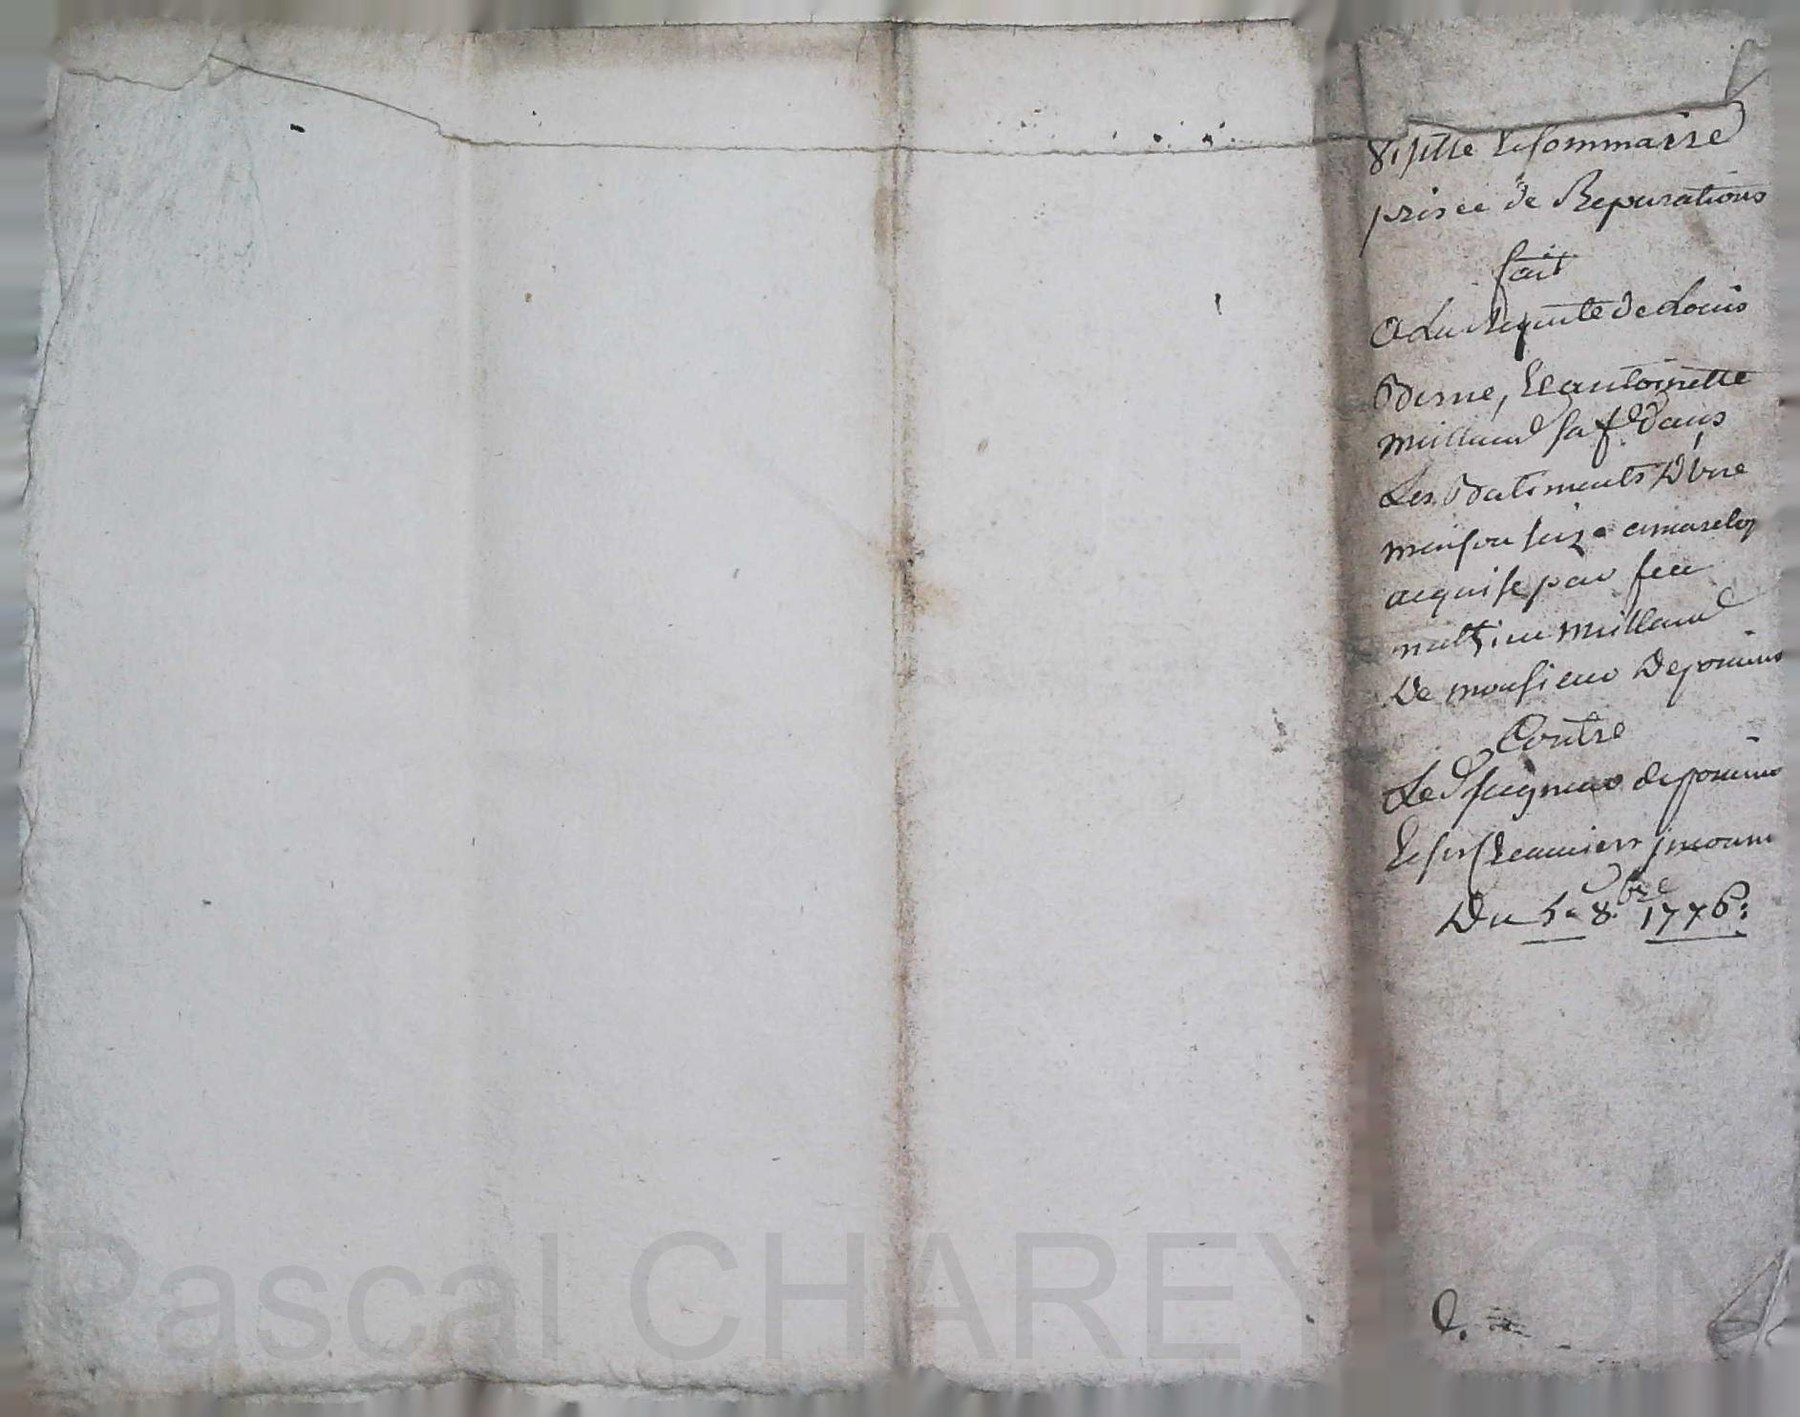 Visitte & sommaire
prisée de Reparations
fait
A La Requete de Louis
Berne, & antoinette
Meilland sa fe dans
Les Batiments D'une
maison size a marclop
acquise par feu
matthieu Meilland
De monsieur De pomins
Contre
Led seigneur de pomins
& ses
Du 5e 8bre 1776:
Pascal CHAREYRON